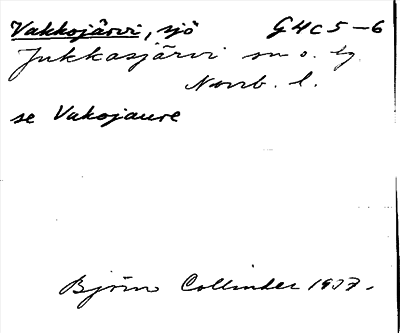 Vakkojärvi, sjö G4c5–6
Jukkasjärvi sn o. tg.
Norrb. l.
se Vakojaure
Björn Collinder 1937.